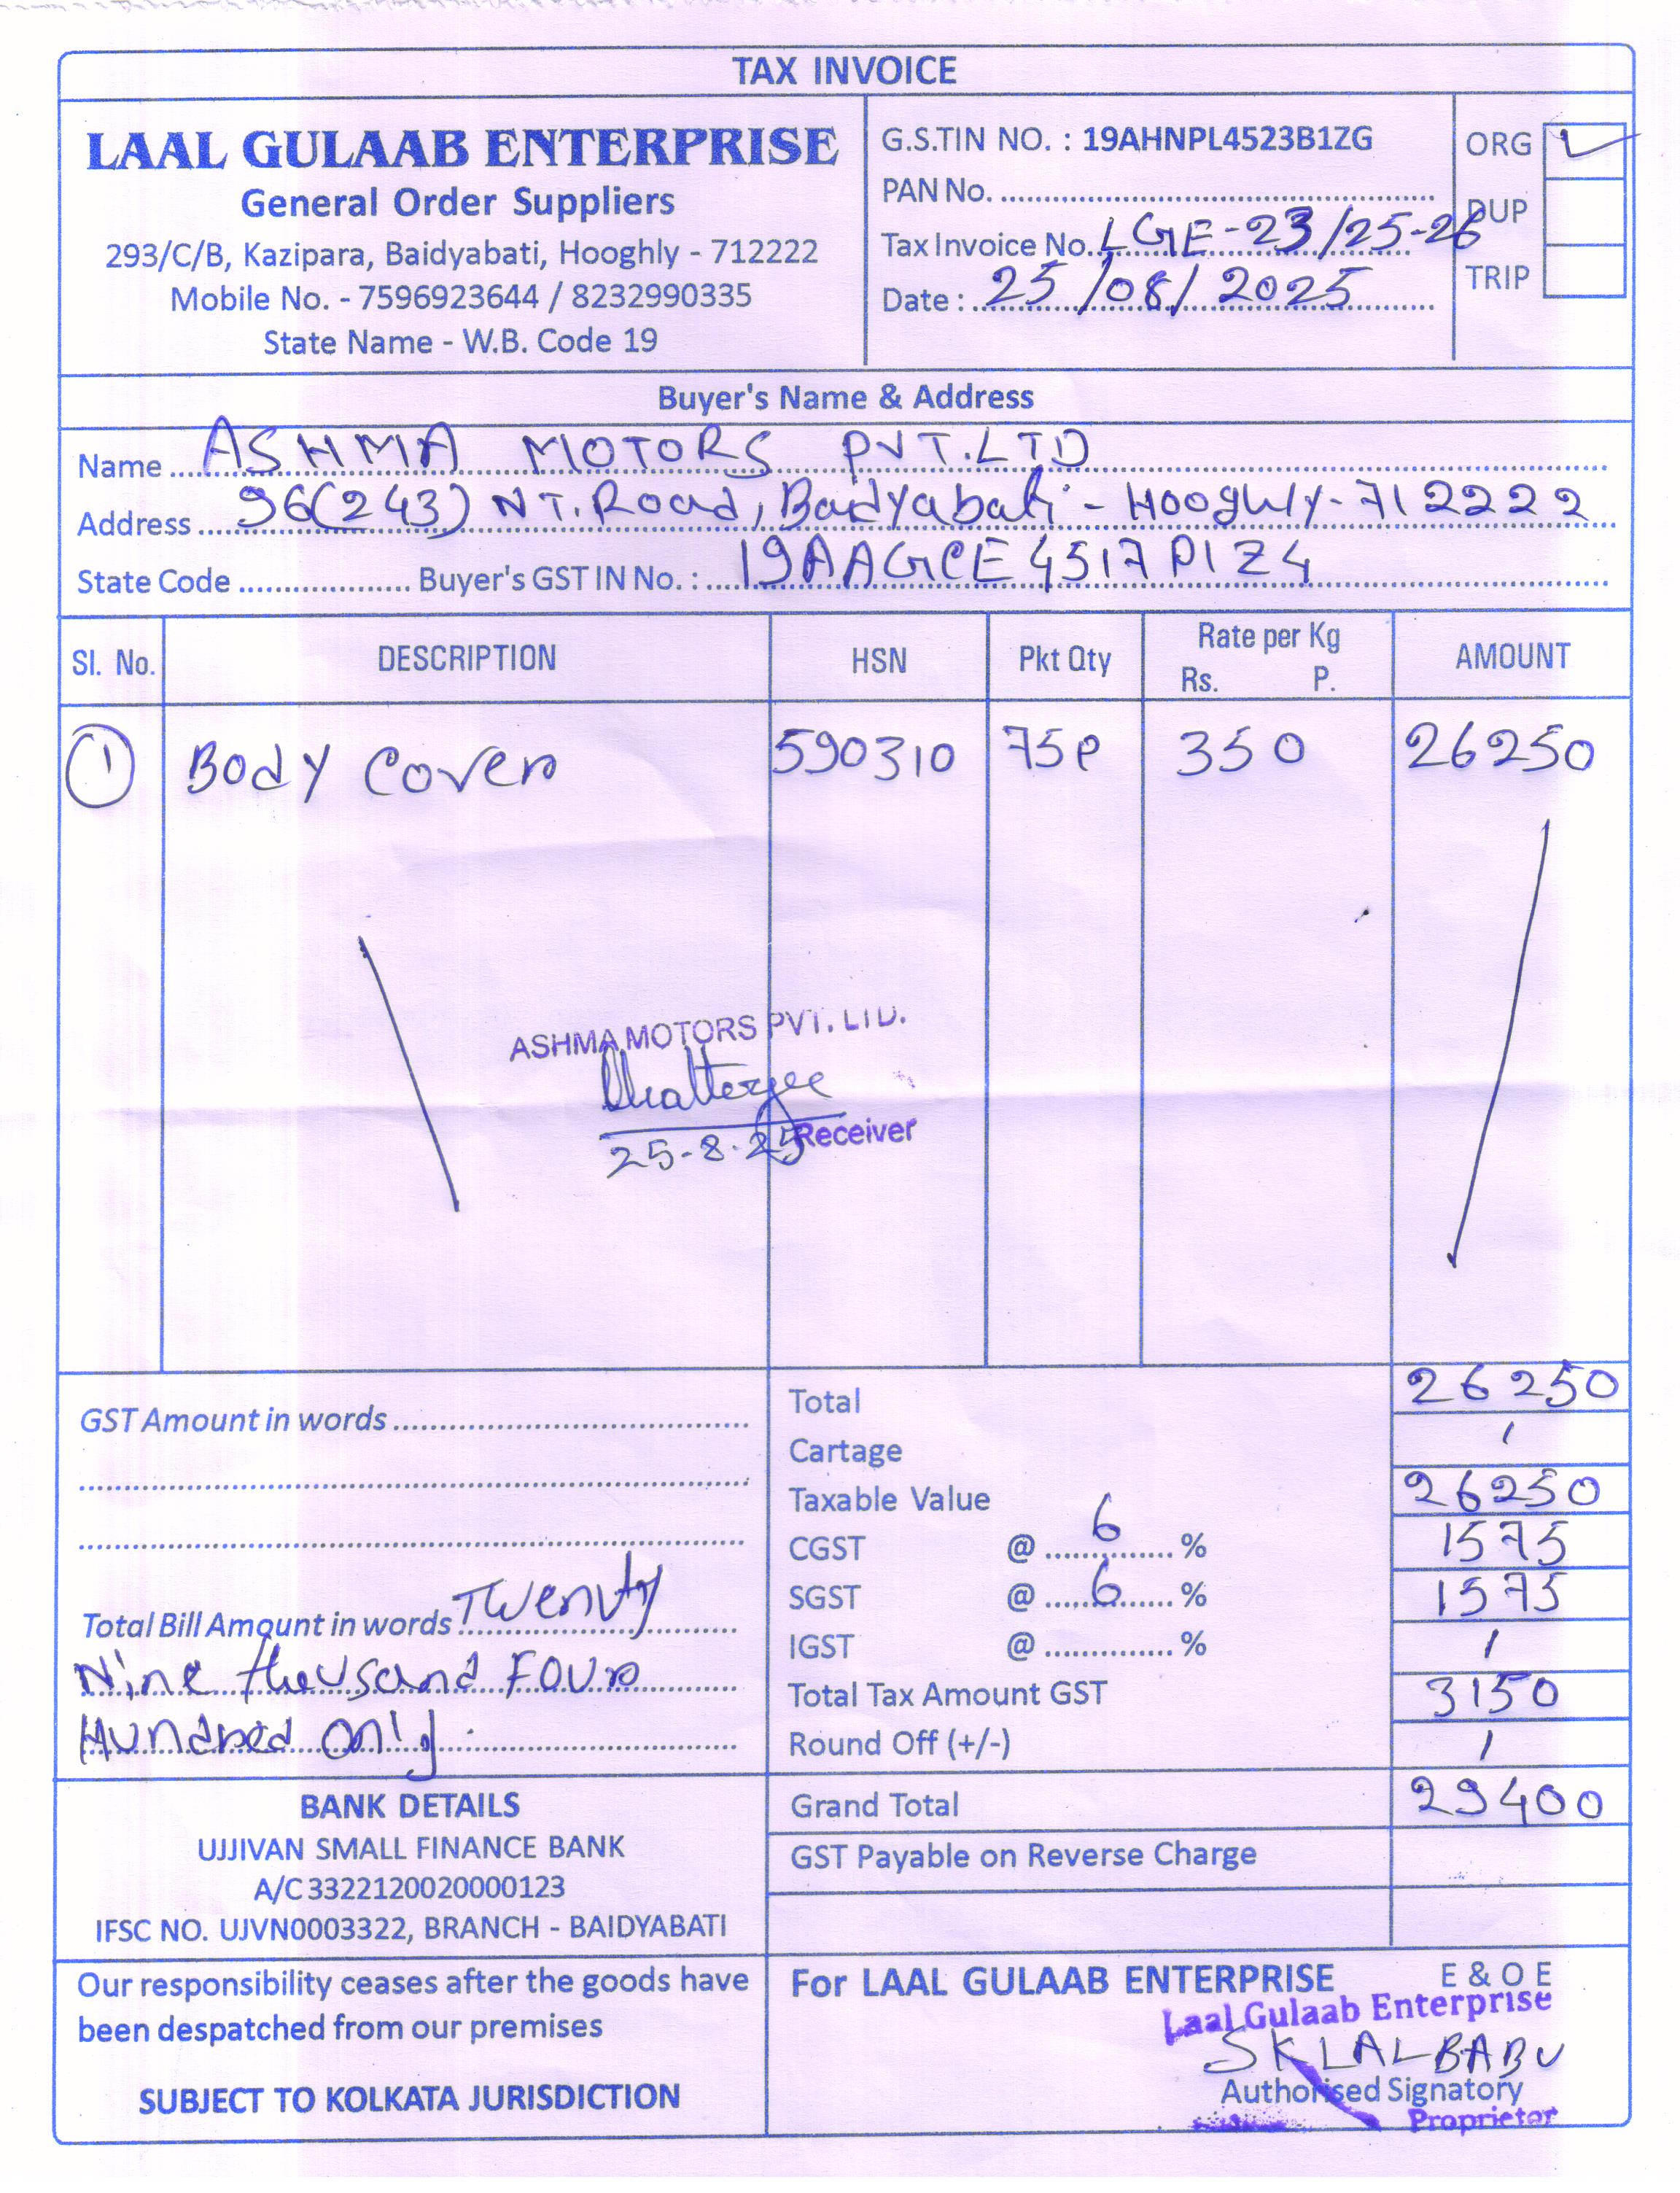 TAX INVOICE
LAAL GULAAB ENTERPRISE
General Order Suppliers
293/C/B, Kazipara, Baidyabati, Hooghly - 712222
Mobile No. - 7596923644 / 8232990335
State Name - W.B. Code 19
G.S.TIN NO. : 19AHNPL4523B1ZG
PAN No.
Tax Invoice No. LGE-23/25-26
Date : 25/08/2025
ORG
DUP
TRIP
Buyer's Name & Address
Name ASHMA MOTORS PVT.LTD
Address 96(243) N T. Road, Baidyabati - Hooghly-712222
State Code Buyer's GST IN No. : 19AAGCE4517P1Z4
Sl. No. DESCRIPTION HSN Pkt Qty Rate per Kg Rs. P. AMOUNT
1 Body Cover 590310 75P 350 26250
ASHMA MOTORS PVT. LTD.
Chatterjee
25-8-25 Receiver
GST Amount in words
Total Bill Amount in words Twenty
Nine thousand Four
Hundred only.
Total 26250
Cartage /
Taxable Value 26250
CGST @ 6 % 1575
SGST @ 6 % 1575
IGST @ % /
Total Tax Amount GST 3150
Round Off (+/-) /
Grand Total 29400
GST Payable on Reverse Charge
BANK DETAILS
UJJIVAN SMALL FINANCE BANK
A/C 3322120020000123
IFSC NO. UJVN0003322, BRANCH - BAIDYABATI
Our responsibility ceases after the goods have
been despatched from our premises
SUBJECT TO KOLKATA JURISDICTION
For LAAL GULAAB ENTERPRISE E & O E
Laal Gulaab Enterprise
SK LAL BABU
Authorised Signatory
Proprietor